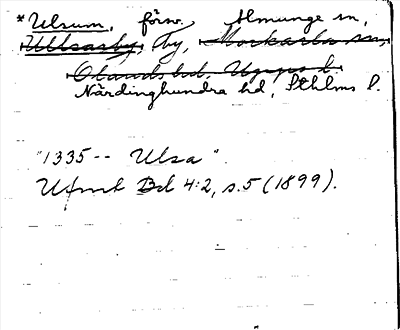 *Ulsum, förv. Almunge sn,
Ullsasby, by, Morkarla sn,
Olands hd, Upps l.
Närdinghundra hd, Sthlms l.
"1335-- Ulsa".
Ufmt Bd 4:2, s.5 (1899).